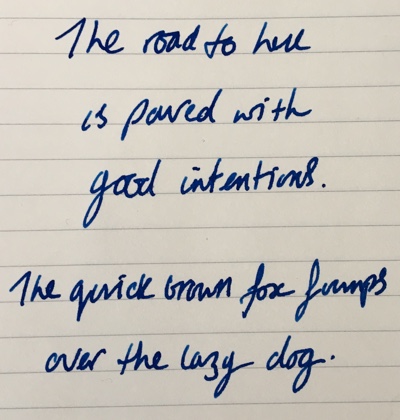 The road to hell
is paved with
good intentions.
The quick brown fox jumps
over the lazy dog.